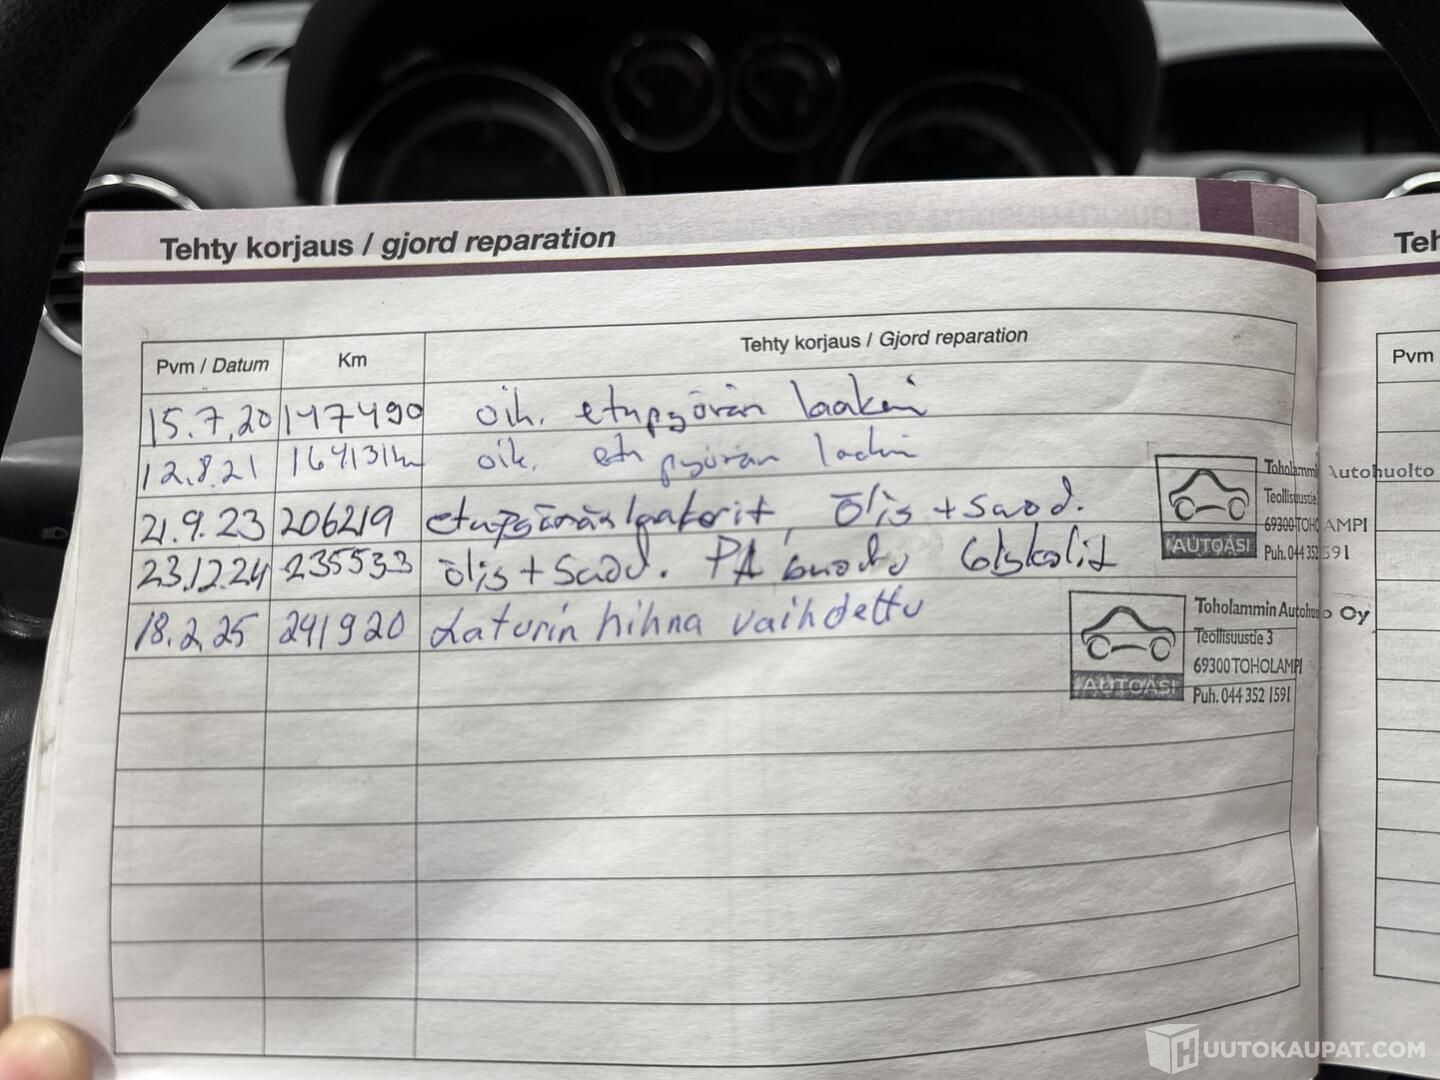 Tehty korjaus / gjord reparation
Teh
Pvm / Datum Km Tehty korjaus / Gjord reparation
Pvm
15.7.20 147490 oik. etupyörän laakeri
12.8.21 164131km oik. etu pyörän laakeri
21.9.23 206219 etupyöränlaakerit, Öljs + Suod.
23.12.24 235533 öljs + Suod. PA
18.2.25 241920 Laturin hihna vaihdettu
Toholammin Autohuolto
Teollisuustie
69300 TOHOLAMPI
AUTOASI Puh. 044 352 1591
Toholammin Autohuolto Oy
Teollisuustie 3
69300 TOHOLAMPI
AUTOASI Puh. 044 352 1591
HUUTOKAUPAT.COM